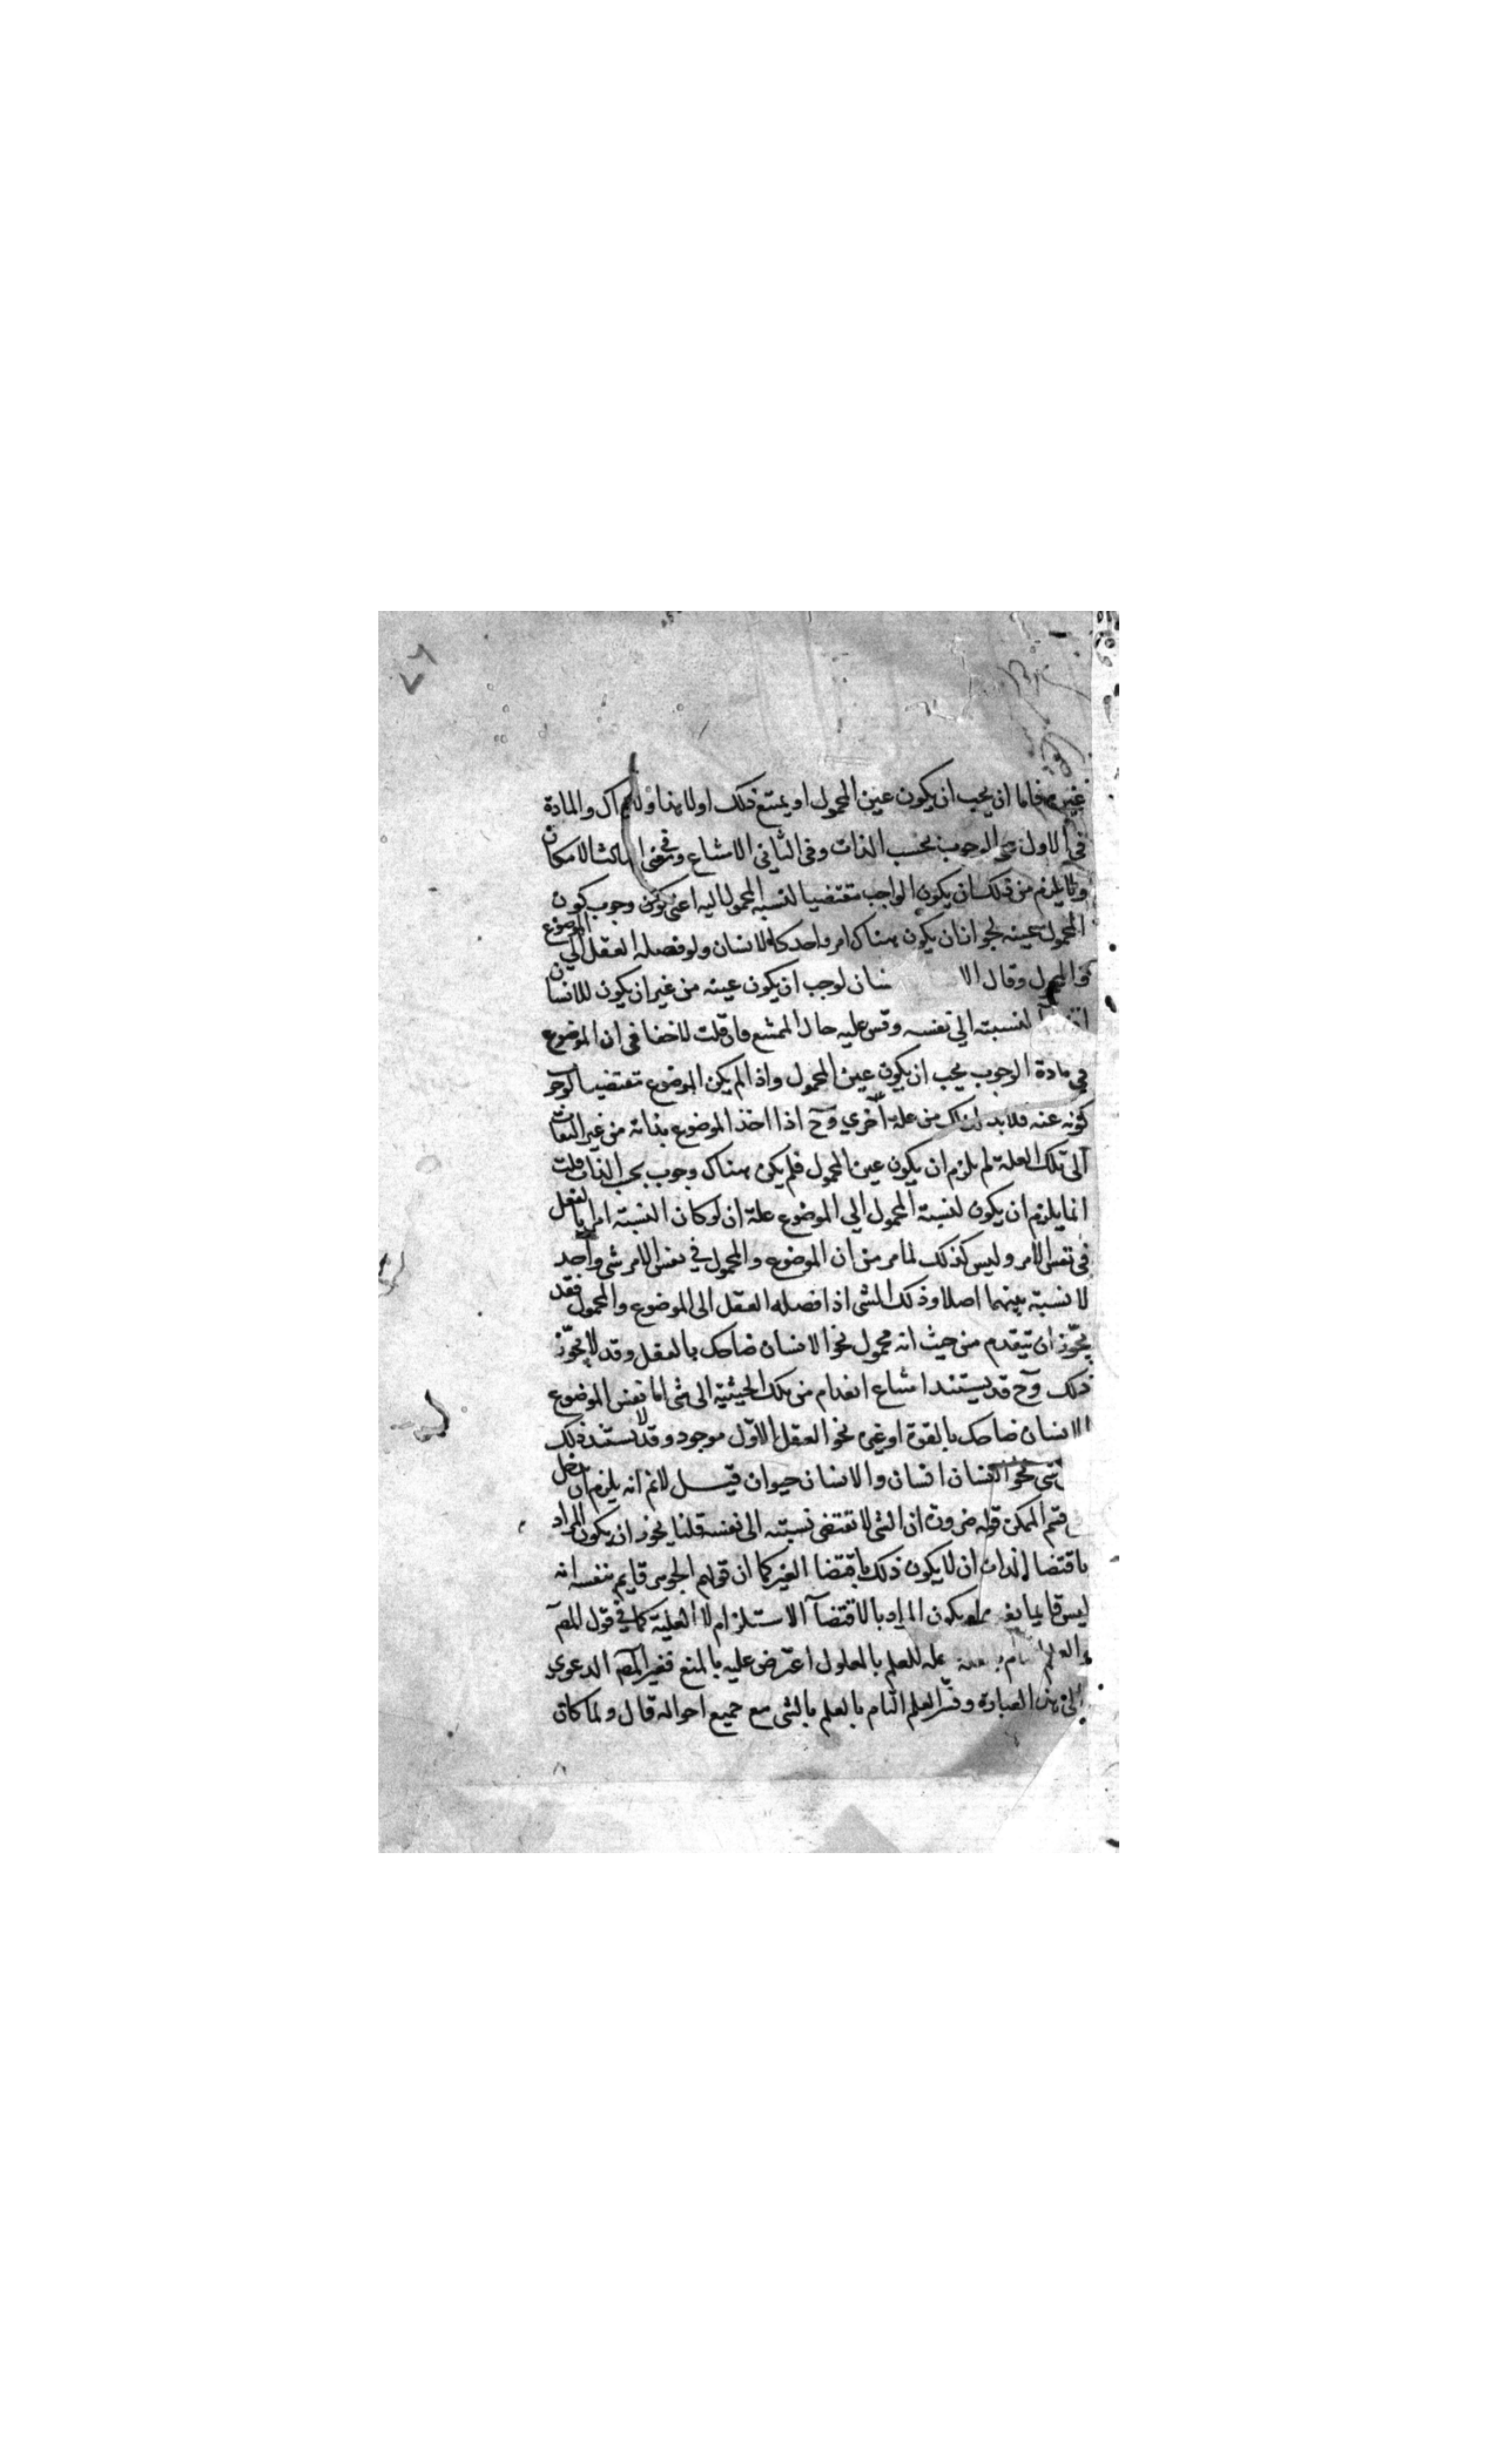 غيره فاما ان يجب ان يكون عين المحمول او يمتنع ذلك اولا هذا ولا ذاك والمادة
في الاول هي الوجوب بحسب الذات وفي الثاني الامتناع وفي الثالث الامكان
ولا يلزم من ذلك ان يكون الواجب مقتضيا لنسبة المحمول اليه اعني وجوب كون
المحمول عينه لجواز ان يكون هناك امر واحد كالانسان ولو فصله العقل الي الموضوع
والمحمول وقال الا نسان لوجب ان يكون عينه من غير ان يكون للانسان
لنسبته الي نفسه وقس عليه حال الممتنع فان قلت لا خفا في ان الموضوع
في مادة الوجوب يجب ان يكون عين المحمول واذا لم يكن الموضوع مقتضيا لوجوب
كونه عنه فلابد هناك من علة اخري وح اذا اخذ الموضوع بذاته من غير التفات
الى تلك العلة لم يلزم ان يكون عين المحمول فلم يكن هناك وجوب بحسب الذات قلت
انما يلزم ان يكون لنسبة المحمول الي الموضوع علة ان لو كان النسبة امرا بالفعل
في نفس الامر وليس كذلك لما مر من ان الموضوع والمحمول في نفس الامر شي واحد
لا نسبة بينهما اصلا وذلك الشي اذا فصله العقل الى الموضوع والمحمول فقد
يجوز ان يتقدم من حيث انه محمول نحو الانسان ضاحك بالفعل وقد لا يجوز
ذلك وح قد يستند امتناع انعدام من تلك الحيثية الى شي اما نفس الموضوع
الانسان ضاحك بالقوة او غيره نحو العقل الاول موجود وقد لا يستند ذلك
شي نحو الانسان انسان والانسان حيوان قيل لانم انه يلزم ان يدخل
قسم الممكن قوله ضرورة ان الشي لا تقتضي نسبته الى نفسه قلنا يجوز ان يكون المراد
باقتضا الذات ان لا يكون ذلك باقتضا الغير كما ان قولهم الجوهر قايم بنفسه انه
ليس قايما بغيره او يكون المراد بالاقتضآ الاستلزام لا العلية كما في قول المص
والعلم التام بالعلة علة للعلم بالمعلول اعترض عليه بالمنع فغير المص الدعوي
الى هذه العبارة وفسر العلم التام بالعلم بالشي مع جميع احواله قال ولما كان